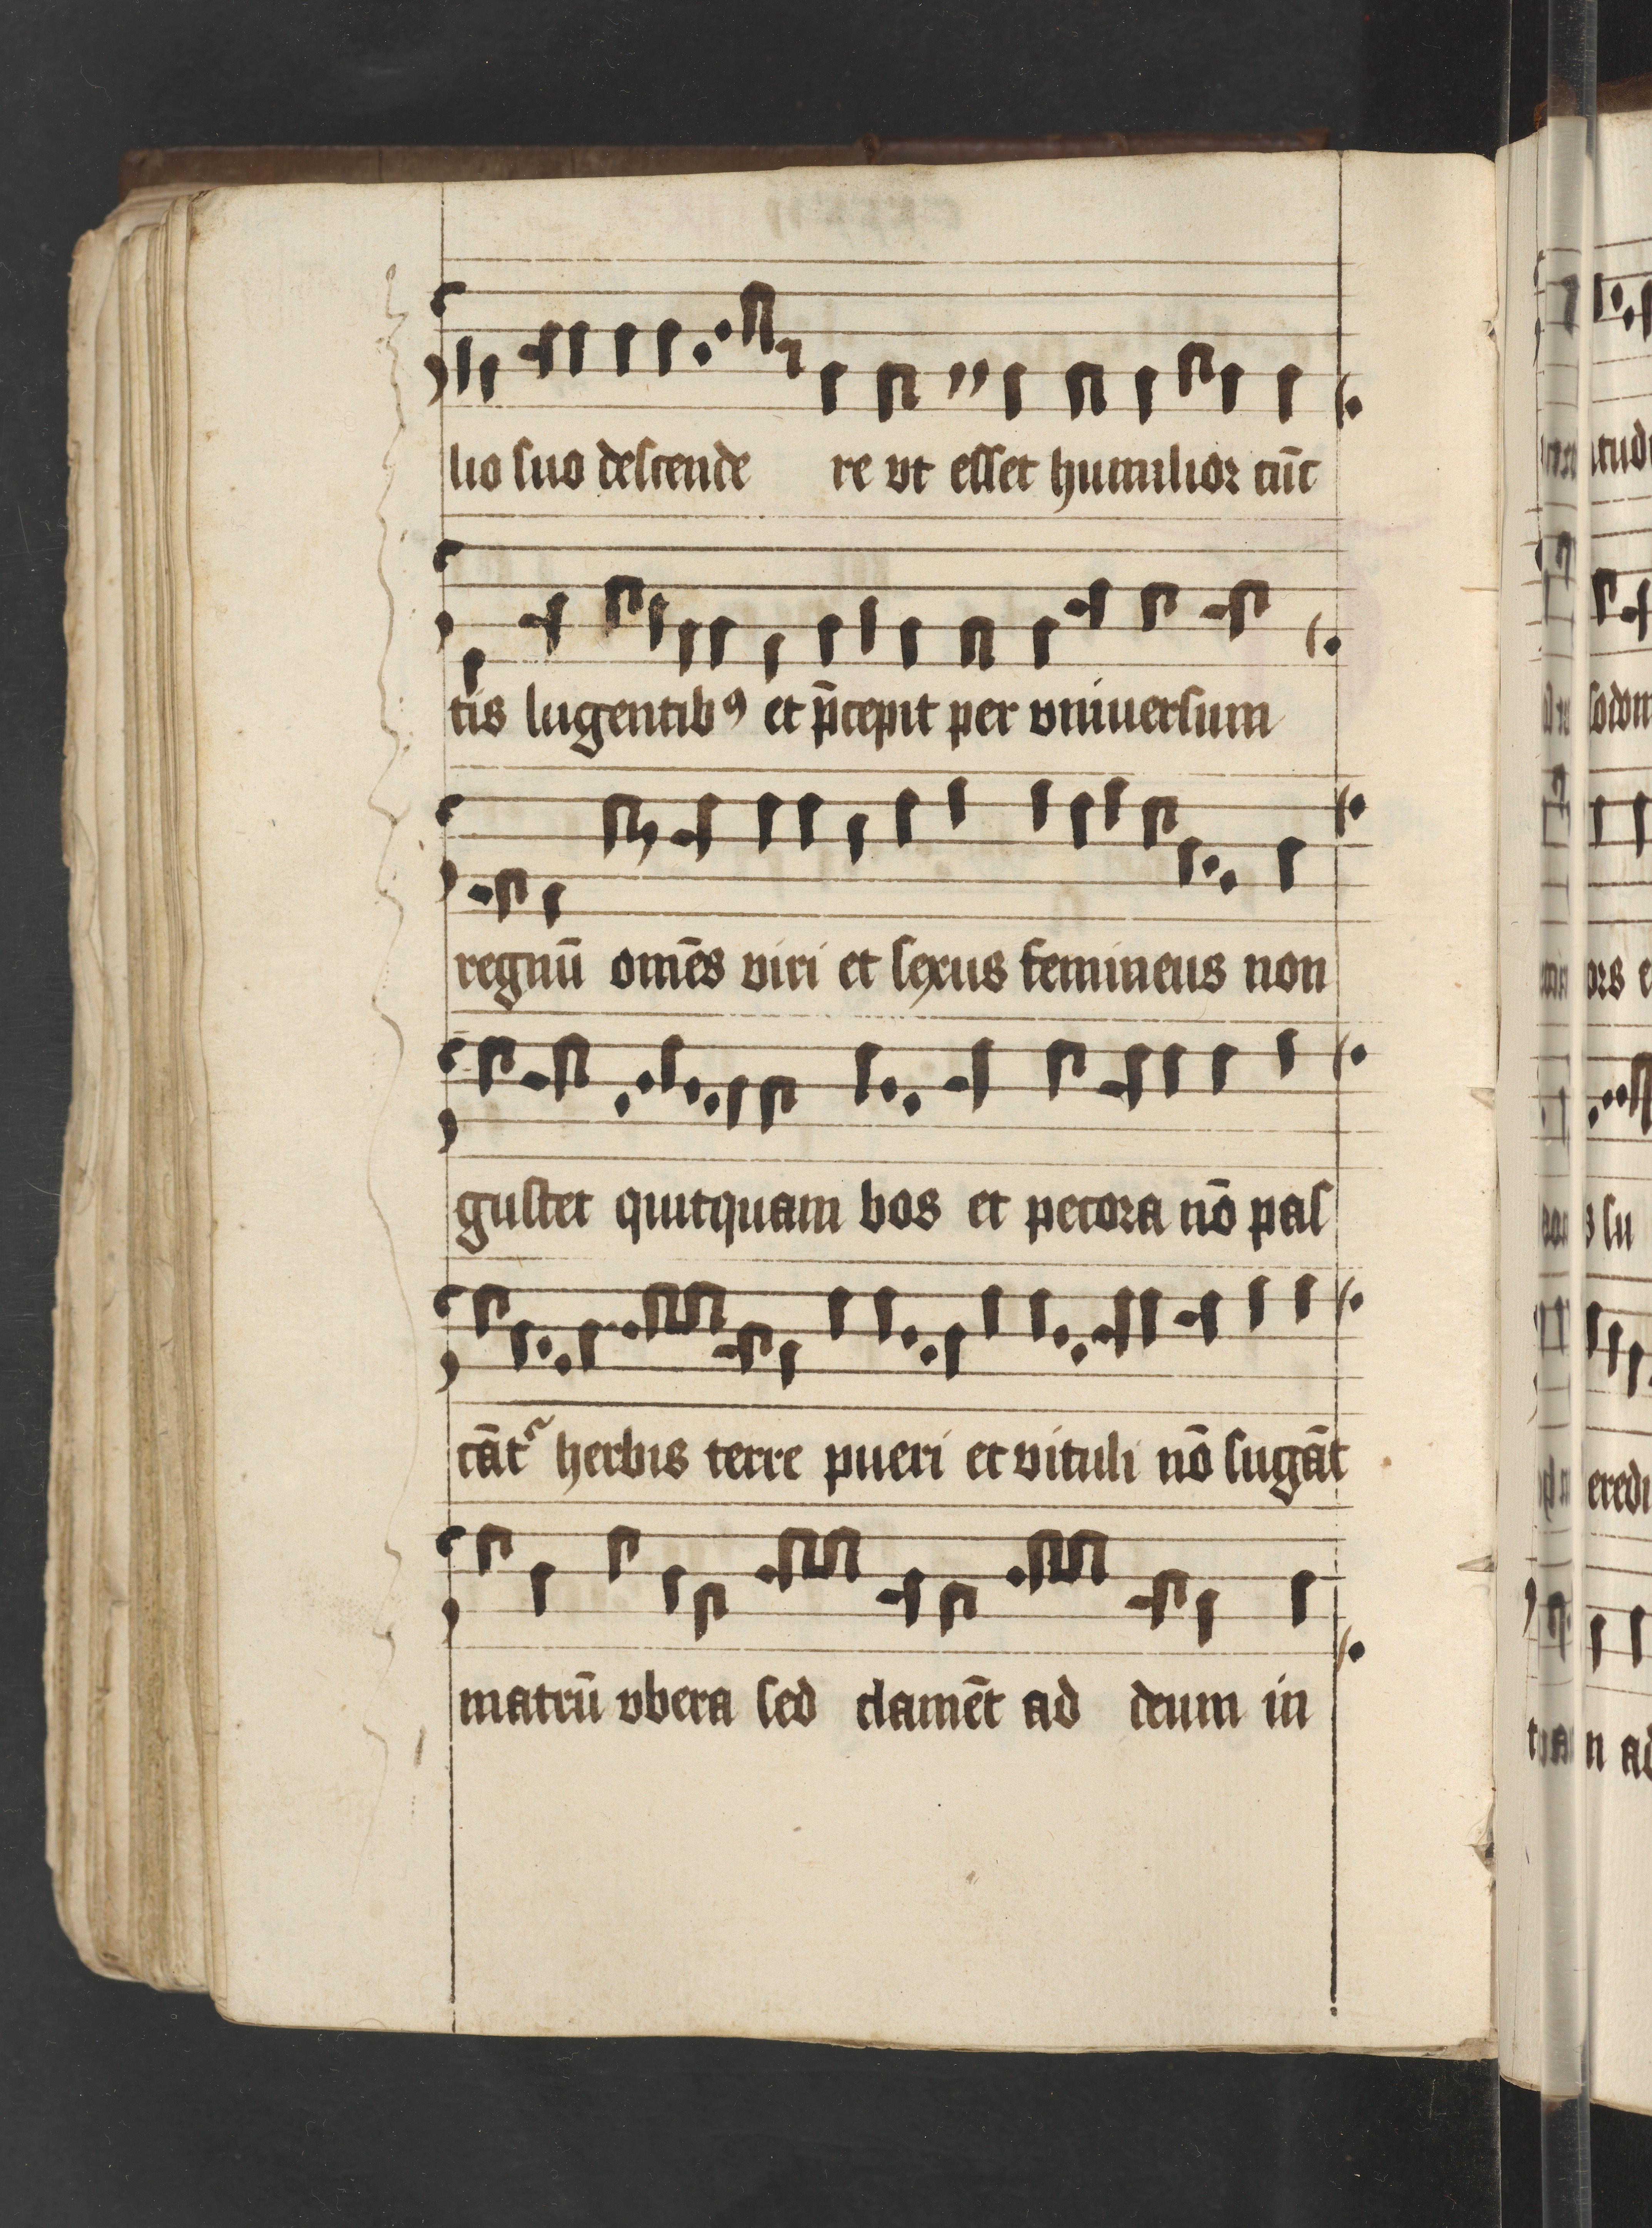 lio suo descende re vt esset humilior cūc
tis lugentibꝰ et p̄cepit per vniuersum
regnū omēs viri et sexus femineus non
gustet quitquam bos et pecora nō pas
cāt᷑ herbis terre pueri et vituli nō sugāt
matrū vbera sed clamēt ad deum in